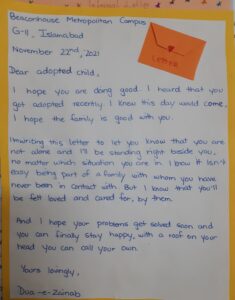 Informal Letter
Beaconhouse Metropolitan Campus
G-11, Islamabad
November 22nd, 2021
LETTER
Dear adopted child,
I hope you are doing good. I heard that you
got adopted recently. I knew this day would come.
I hope the family is good with you.
I'm writing this letter to let you know that you are
not alone and I'll be standing right beside you,
no matter which situation you are in. I know it isn't
easy being part of a family with whom you have
never been in contact with. But I know that you'll
be felt loved and cared for, by them.
And I hope your problems get solved soon and
you can finally stay happy, with a roof on your
head you can call your own.
Yours lovingly,
Dua-e-Zainab